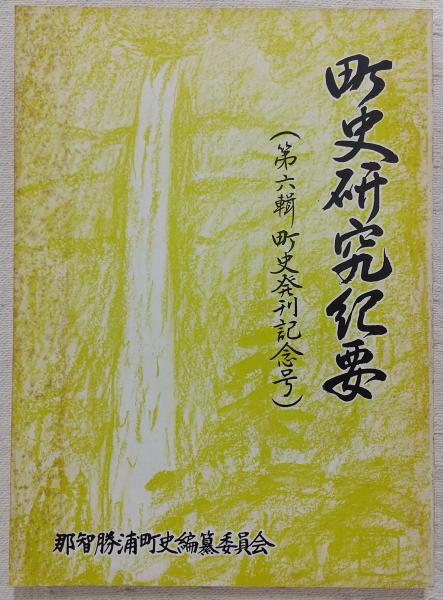 町史研究紀要
(第六輯町史発刊記念号)
那智勝浦町史編纂委員会